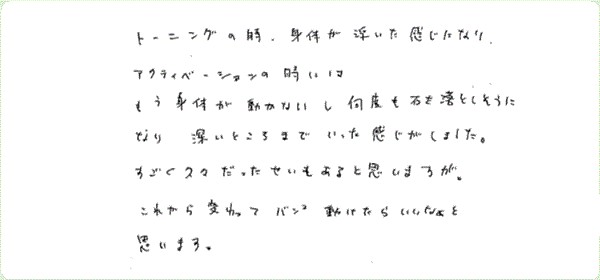 トーニングの時、身体が浮いた感じになり、
アクティベーションの時には
もう身体が動かないし何度も石を落としそうに
なり 深いところまでいった感じがしました。
すごく久々だったせいもあると思いますが。
これから変わってバンバン動けたらいいなぁと
思います。